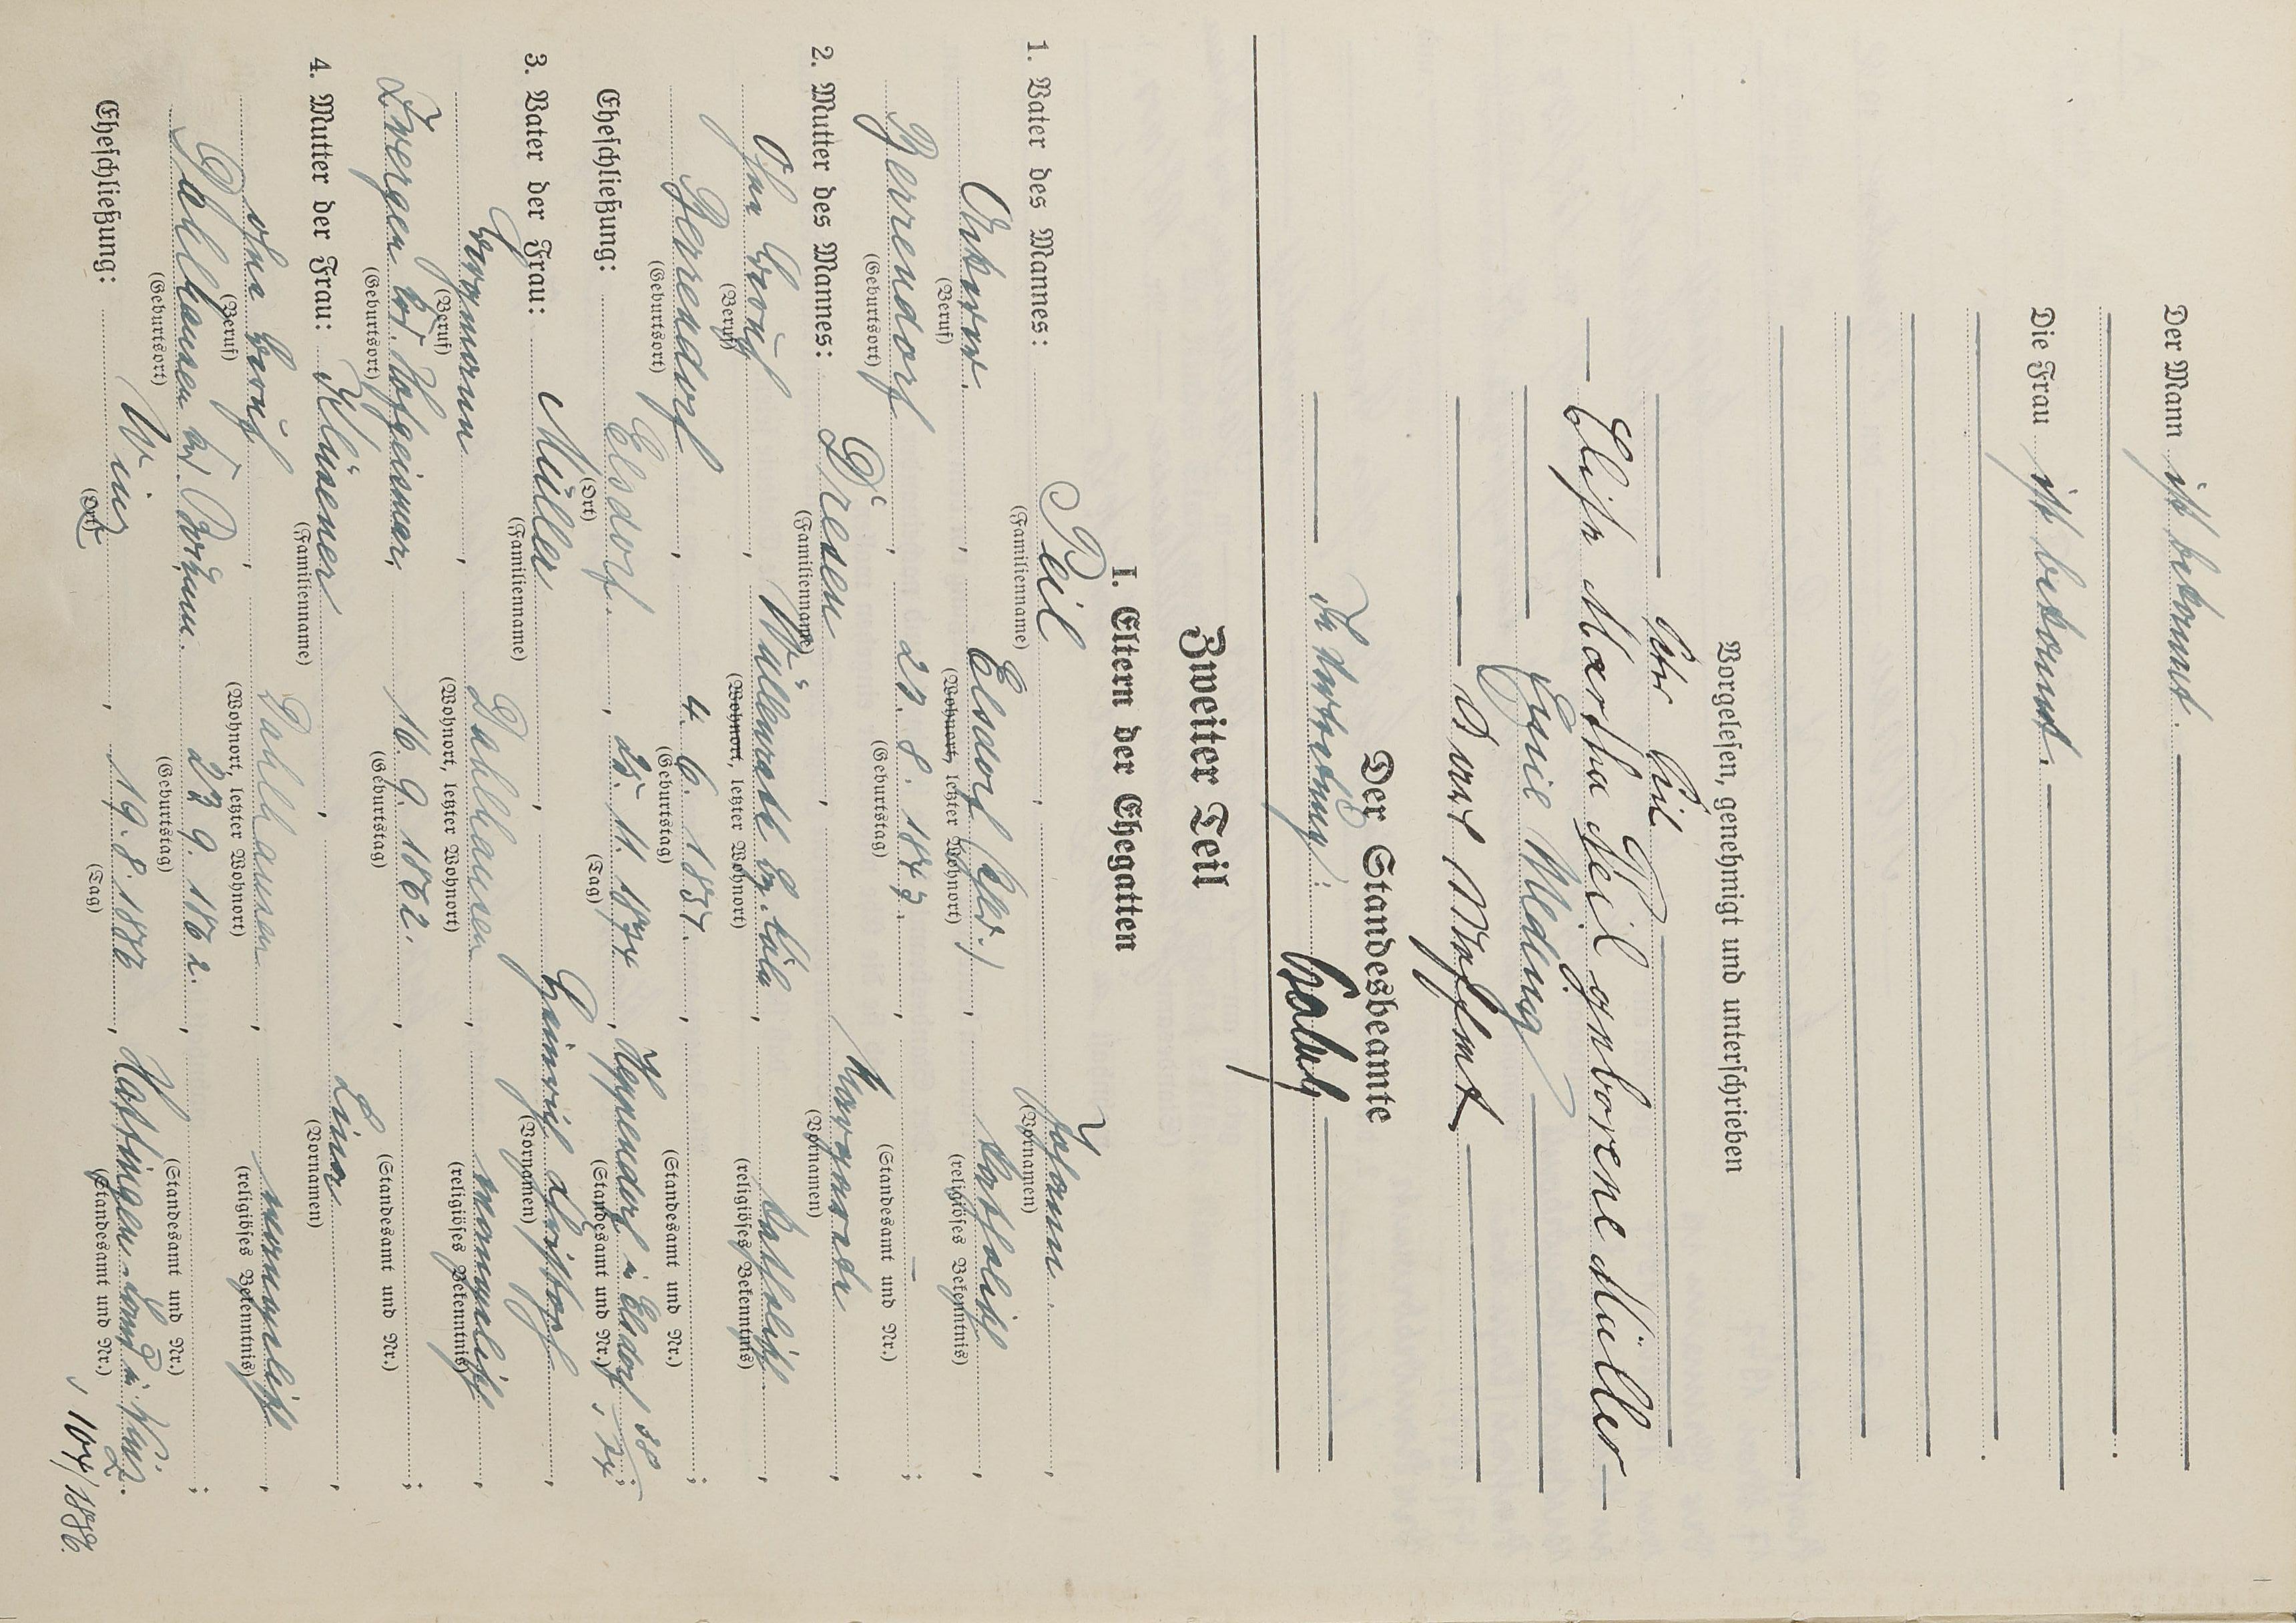 Der Mann ist bekannt.
Die Frau ist bekannt.
Vorgelesen, genehmigt und unterschrieben
Peil
Elise Martha Peil geborene Müller
Der Standesbeamte
In Vertretung:
Zweiter Teil
I. Eltern der Ehegatten
1. Vater des Mannes: Peil, Johann,
(Familienname) (Vornamen)
Elsdorf (Rhld.), katholisch,
(Beruf) (Wohnort, letzter Wohnort) (religiöses Bekenntnis)
Berrendorf, 27. 8. 1847.
(Geburtsort) (Geburtstag) (Standesamt und Nr.)
2. Mutter des Mannes: Dresen, Margareta,
(Familienname) (Vornamen)
ohne Beruf, Müllerode Bz. Köln, katholisch,
(Beruf) (Wohnort, letzter Wohnort) (religiöses Bekenntnis)
Berrendorf, 4. 6. 1857.
(Geburtsort) (Geburtstag) (Standesamt und Nr.)
Eheschließung: Elsdorf, 25. 11. 1874, Heppendorf in Elsdorf, 38/74;
(Ort) (Tag) (Standesamt und Nr.)
3. Vater der Frau: Müller, Heinrich Christoph,
(Familienname) (Vornamen)
Bergmann, Dahlhausen, evangelisch,
(Beruf) (Wohnort, letzter Wohnort) (religiöses Bekenntnis)
Zwergen Krs. Hofgeismar, 16. 9. 1862.
(Geburtsort) (Geburtstag) (Standesamt und Nr.)
4. Mutter der Frau: Klüsener, Lina,
(Familienname) (Vornamen)
ohne Beruf, Dahlhausen, evangelisch,
(Beruf) (Wohnort, letzter Wohnort) (religiöses Bekenntnis)
Dahlhausen Krs. Bochum. 27. 9. 1862.
(Geburtsort) (Geburtstag) (Standesamt und Nr.)
Eheschließung: Winz, 19. 8. 1886, Hattingen-Land in Winz.
(Ort) (Tag) (Standesamt und Nr.)
, 104/1886.